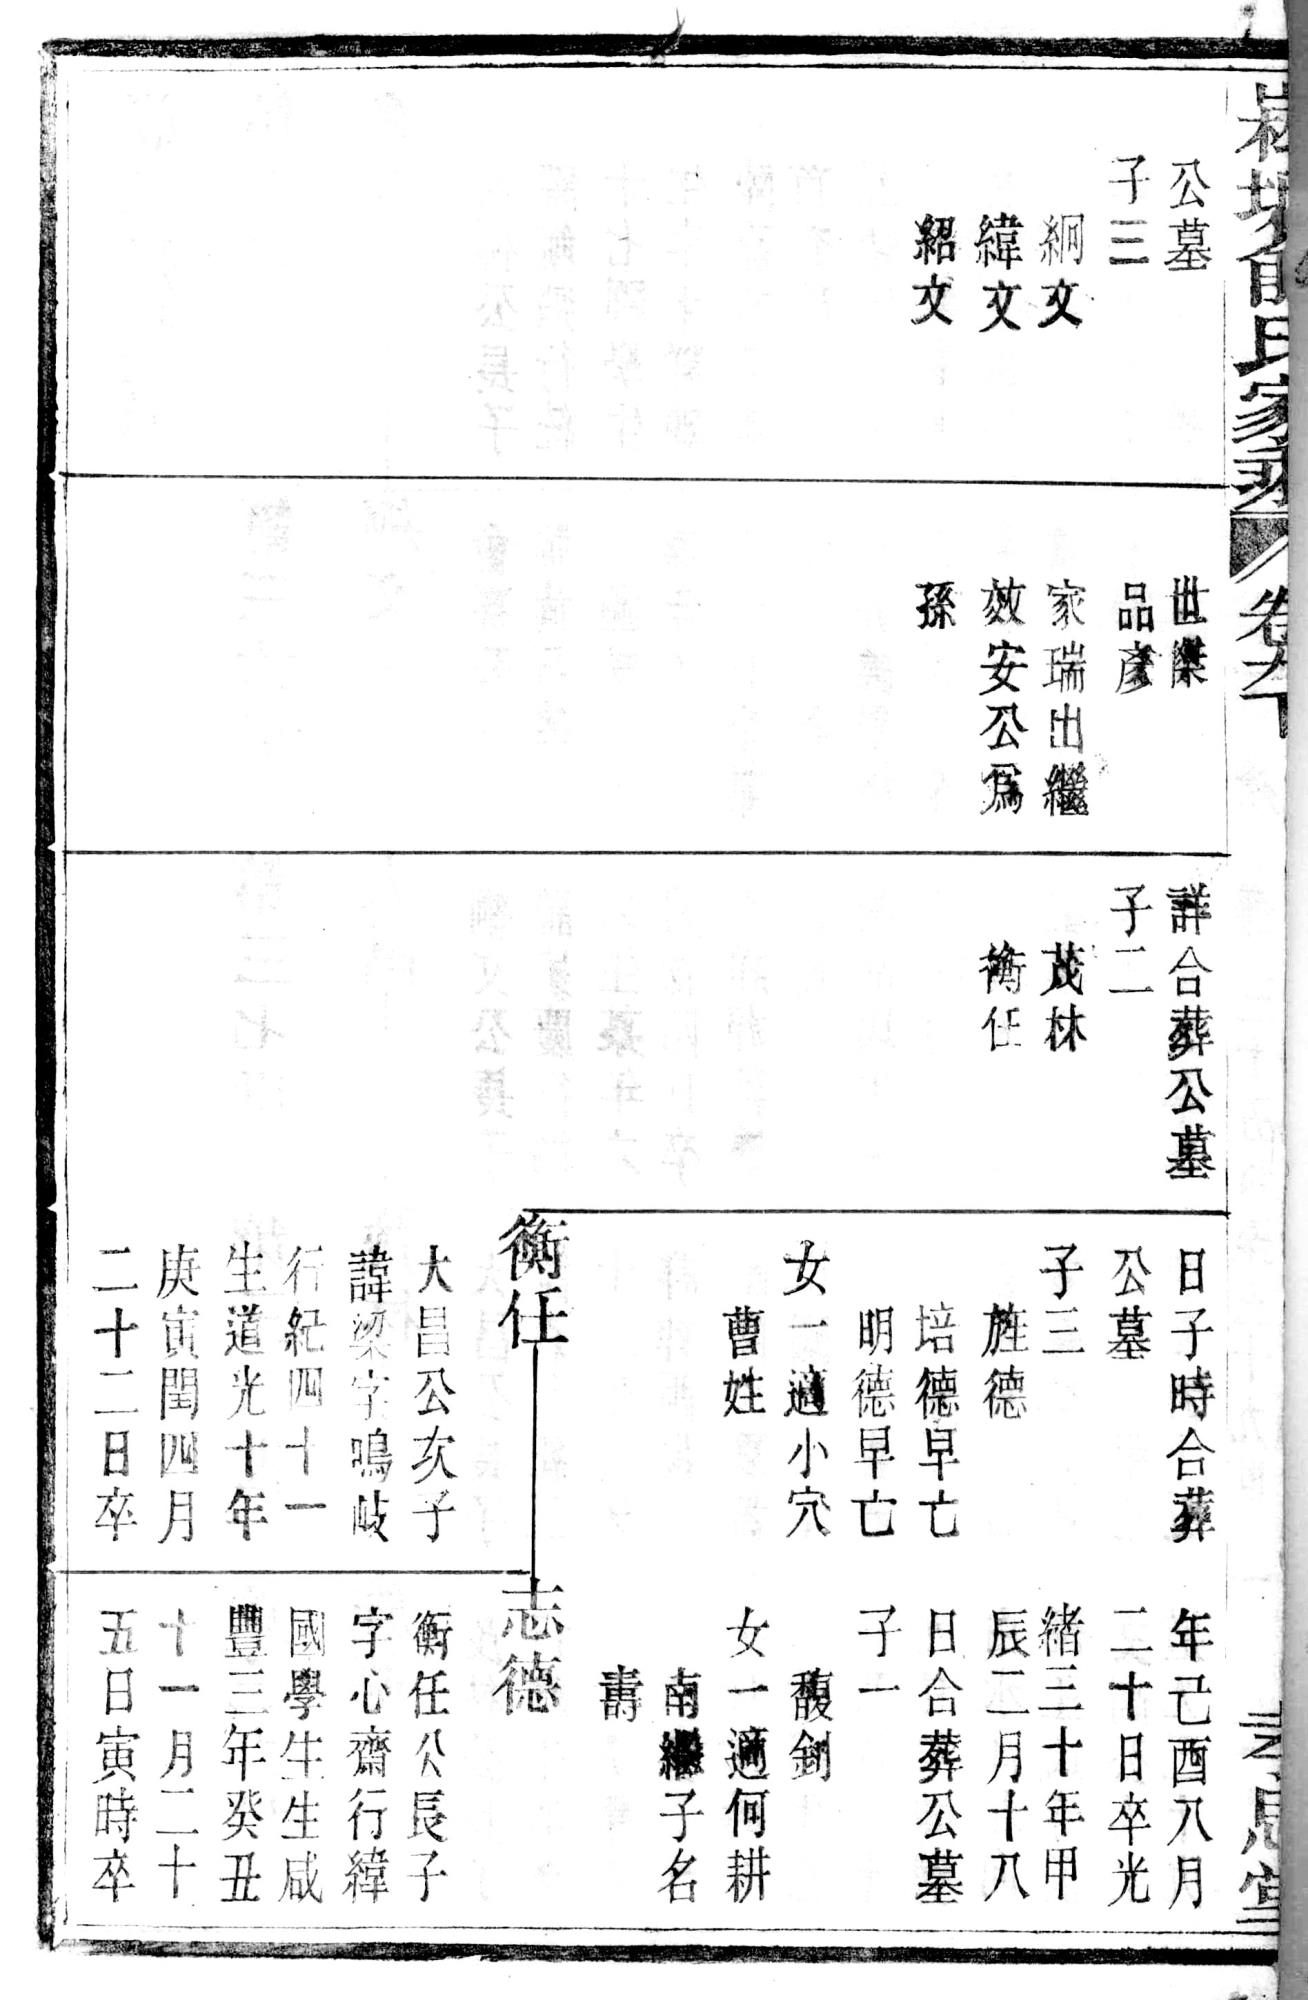 氏家乘
卷
思堂
公墓
子三
絅文
緯文
紹文
世傑
品彥
家瑞出繼
效安公爲
孫
詳合葬公墓
子二
茂林
衡任
日子時合葬
公墓
子三
旌德
培德早亡
明德早亡
女一適小穴
曹姓
衡任
大昌公次子
諱梁字鳴岐
行紀四十一
生道光十年
庚寅閏四月
二十二日卒
年己酉八月
二十日卒光
緒三十年甲
辰二月十八
日合葬公墓
子一
馥釗
女一適何耕
南繼子名
壽
志德
衡任公長子
字心齋行緯
國學生生咸
豐三年癸丑
十一月二十
五日寅時卒